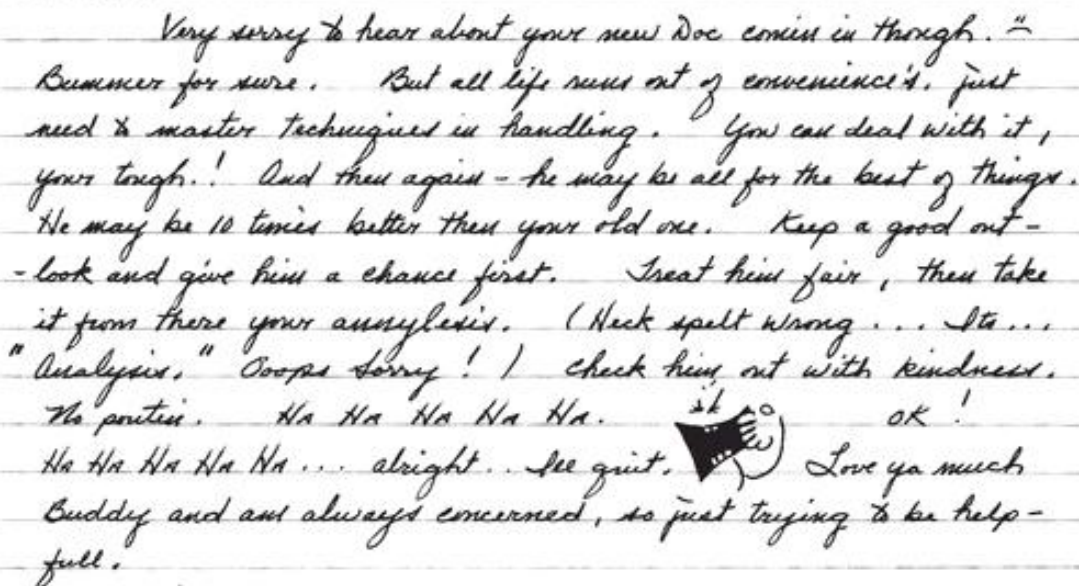 Very sorry to hear about your new Doc comin in though. "
Bummer for sure. But all life runs out of convenience's, just
need to master techniques in handling. You can deal with it,
your tough.! And then again - he may be all for the best of things.
He may be 10 times better then your old one. Keep a good out-
-look and give him a chance first. Treat him fair, then take
it from there your annylesis. (Heck spelt wrong... Its...
"Analysis." Ooops Sorry!) check him out with kindness.
No poutin. HA HA HA HA HA. OK!
HA HA HA HA HA... alright.. Ile quit. Love ya much
Buddy and am always concerned, so just trying to be help-
full.